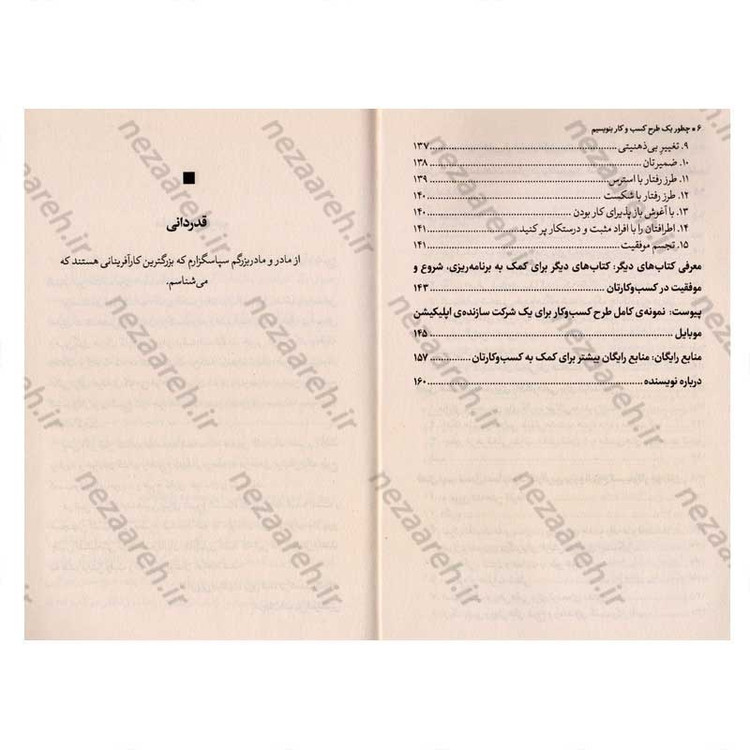 ۶ ▪ چطور یک طرح کسب و کار بنویسیم
۹. تغییرِ بی‌ذهنیتی ........ ۱۳۷
۱۰. ضمیرتان ........ ۱۳۸
۱۱. طرز رفتار با استرس ........ ۱۳۹
۱۲. طرز رفتار با شکست ........ ۱۴۰
۱۳. با آغوش باز پذیرای کار بودن ........ ۱۴۰
۱۴. اطرافتان را با افراد مثبت و درستکار پر کنید ........ ۱۴۱
۱۵. تجسم موفقیت ........ ۱۴۱
معرفی کتاب‌های دیگر: کتاب‌های دیگر برای کمک به برنامه‌ریزی، شروع و
موفقیت در کسب‌وکارتان ........ ۱۴۳
پیوست: نمونه‌ی کامل طرح کسب‌وکار برای یک شرکت سازنده‌ی اپلیکیشن
موبایل ........ ۱۴۵
منابع رایگان: منابع رایگان بیشتر برای کمک به کسب‌وکارتان ........ ۱۵۷
درباره نویسنده ........ ۱۶۰
قدردانی
از مادر و مادربزرگم سپاسگزارم که بزرگترین کارآفرینانی هستند که
می‌شناسم.
nezaareh.ir
nezaareh.ir
nezaareh.ir
nezaareh.ir
nezaareh.ir
nezaareh.ir
nezaareh.ir
nezaareh.ir